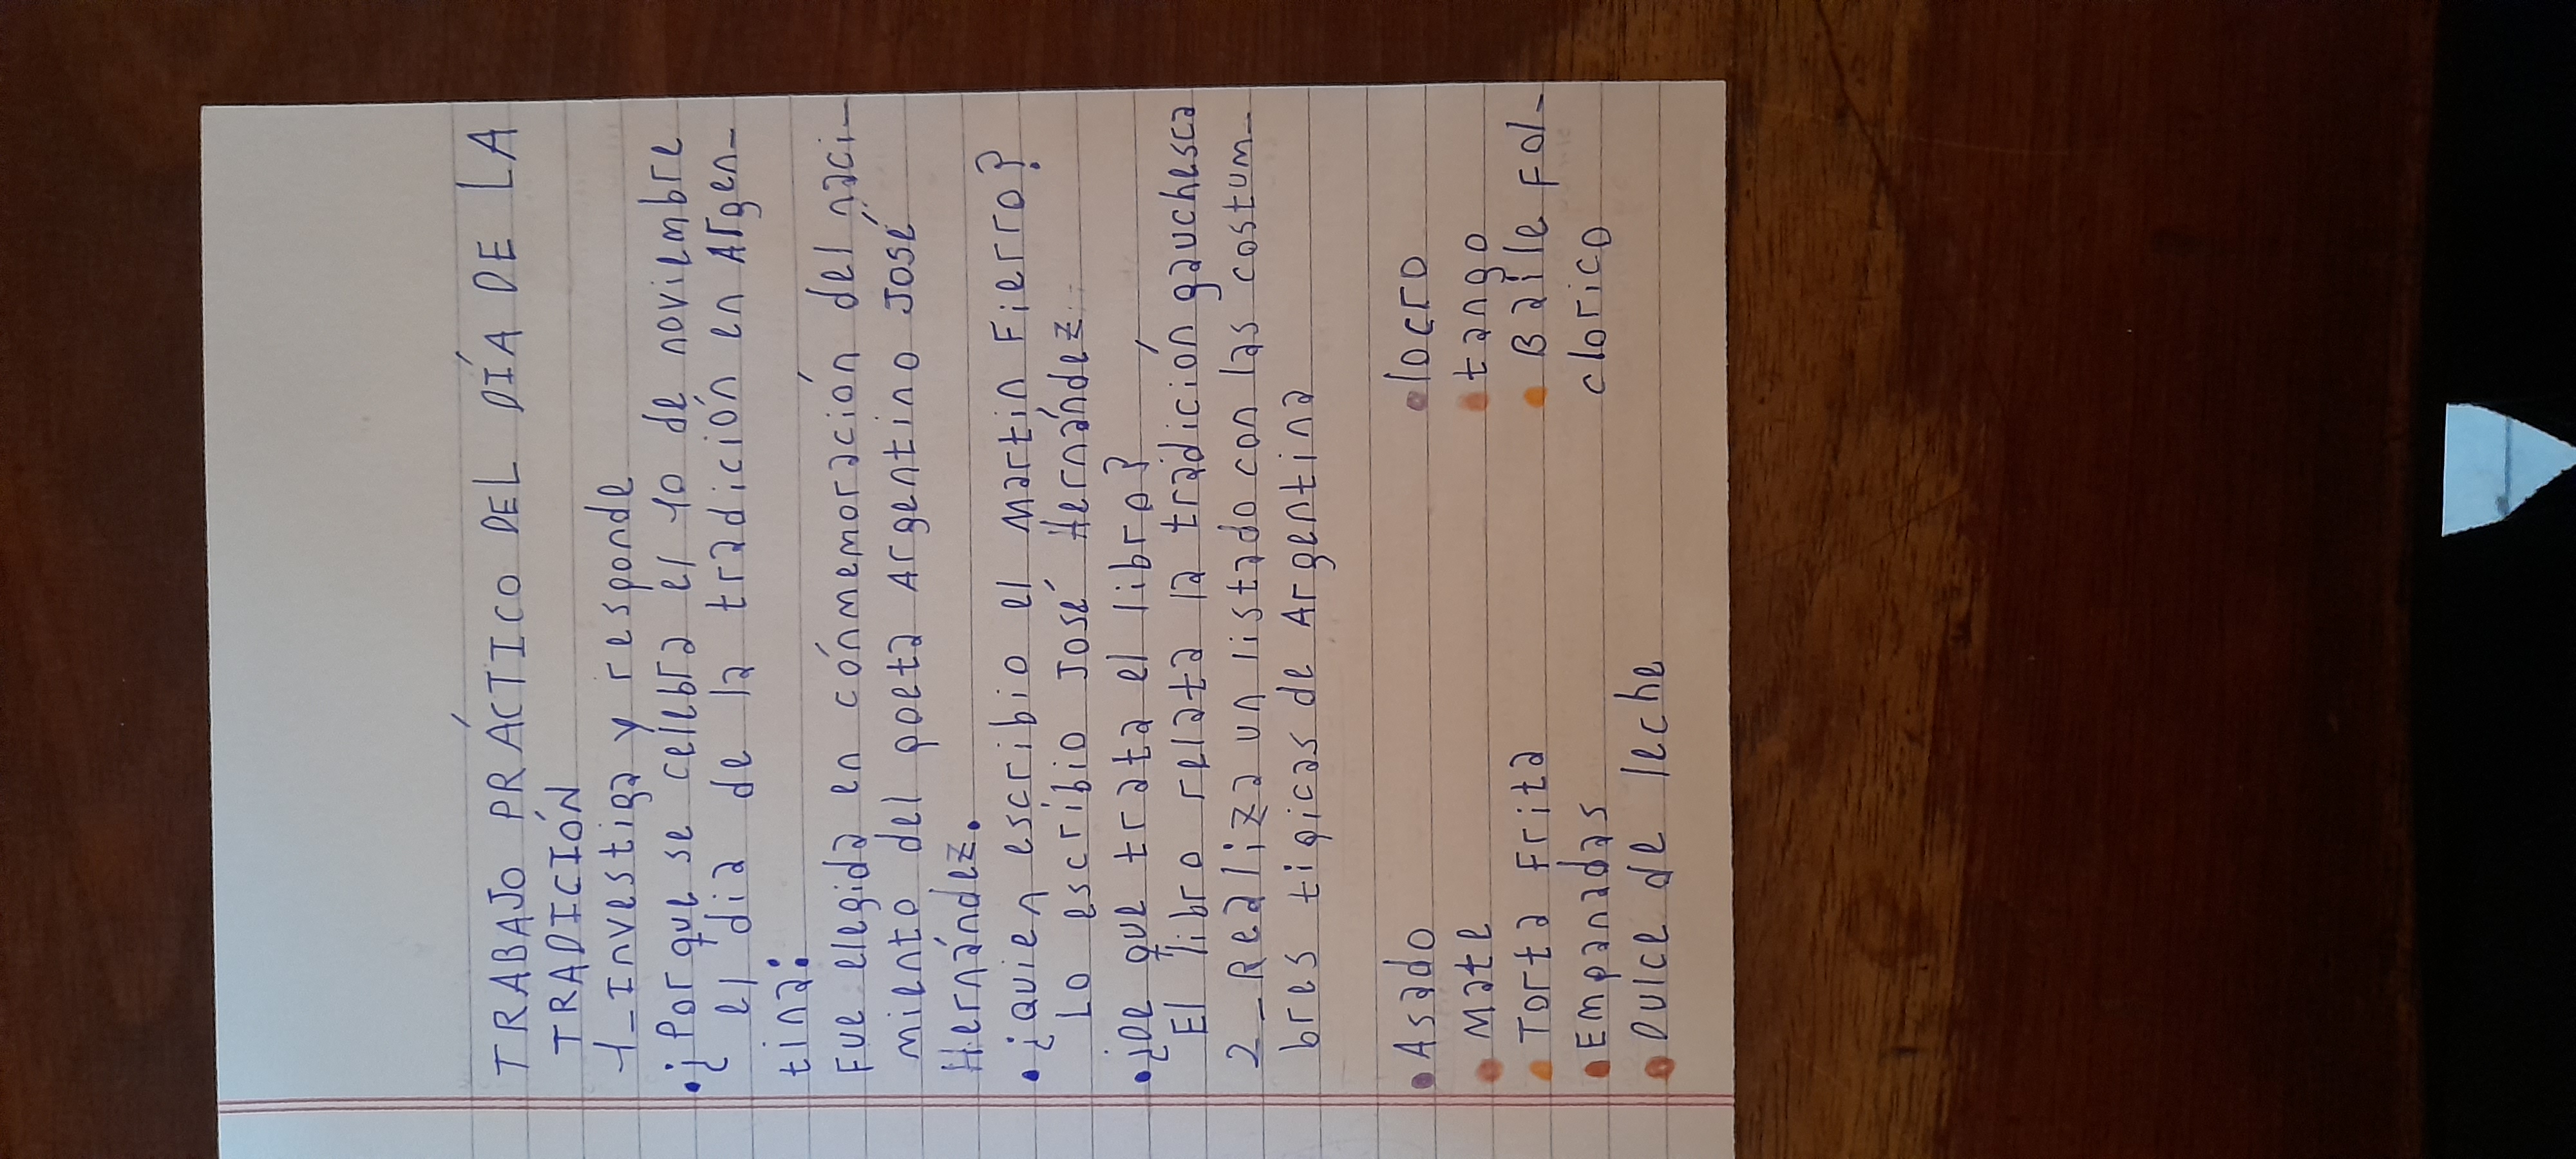 TRABAJO PRÁCTICO DEL DÍA DE LA
TRADICIÓN
1_Investiga y responde
• ¿Porque se celebra el 10 de noviembre
el dia de la tradición en Argen_
tina:
Fue elegida en cónmemoración del naci_
miento del poeta Argentino José
Hernández.
• ¿quien escribio el Martin Fierro?
Lo escribio José Hernández
• ¿De que trata el libro?
El libro relata la tradición gauchesca
2_Realiza un listado con las costum_
bres tipicas de Argentina
• Asado
• Mate
• Torta Frita
• Empanadas
• Dulce de leche
• locro
• tango
• Baile Fol_
clorico